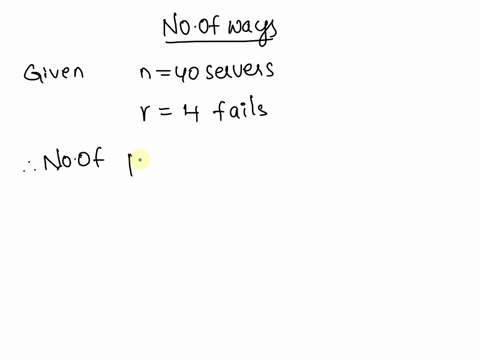 No.Of ways
Given n=40 servers
r = 4 fails
∴ No.Of